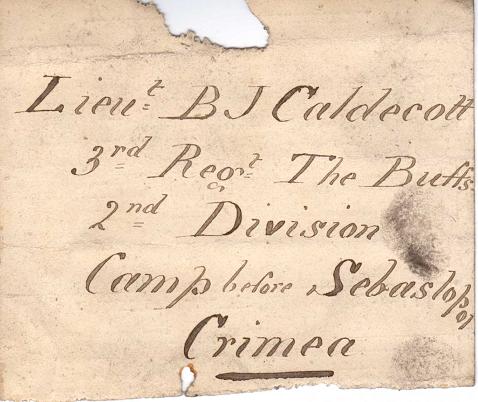 Lieut. B J Caldecott
3rd Regt. The Buffs
2nd Division
Camp before Sebastopol
or
Crimea